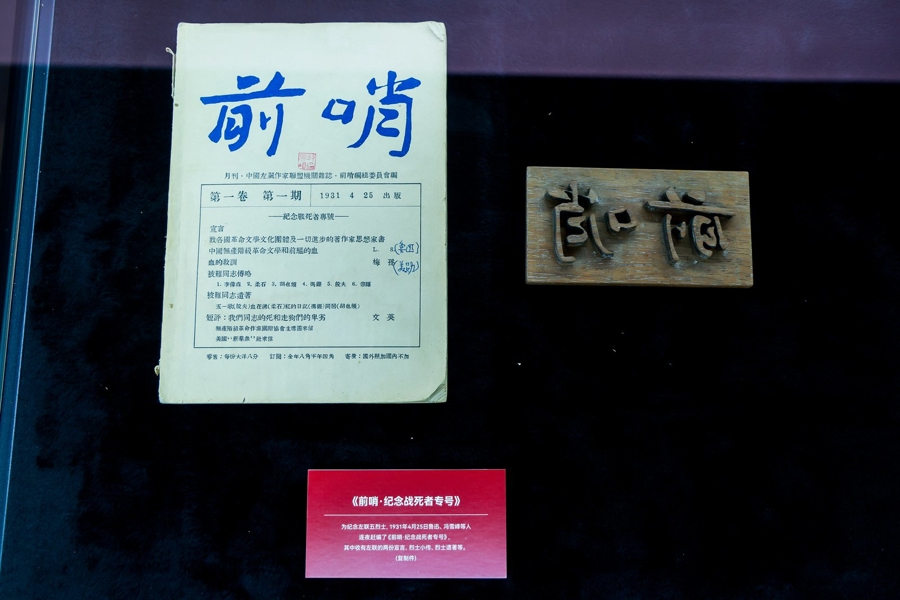 前 哨
月刊·中國左翼作家聯盟機關雜誌·前哨編緝委員會編
第一卷 第一期 1931 4 25 出版
——紀念戰死者專號——
宣言
致各國革命文學文化團體及一切進步的著作家思想家書
中國無產階級革命文學和前驅的血 L. S.
血的教訓 梅 孫
被難同志傳略
1. 李偉森 2. 柔石 3. 胡也頻 4. 馮鏗 5. 殷夫 6. 宗暉
被難同志遺著
短評：我們同志的死和走狗們的卑劣 文 英
無產階級革命作家國際協會主席團來信
零售：每份大洋八分 訂閱：全年八角半年四角 寄費：國外照加國內不加
前哨
《前哨·纪念战死者专号》
为纪念左联五烈士，1931年4月25日鲁迅、冯雪峰等人
连夜赶编了《前哨·纪念战死者专号》，
其中收有左联的两份宣言、烈士小传、烈士遗著等。
(复制件)